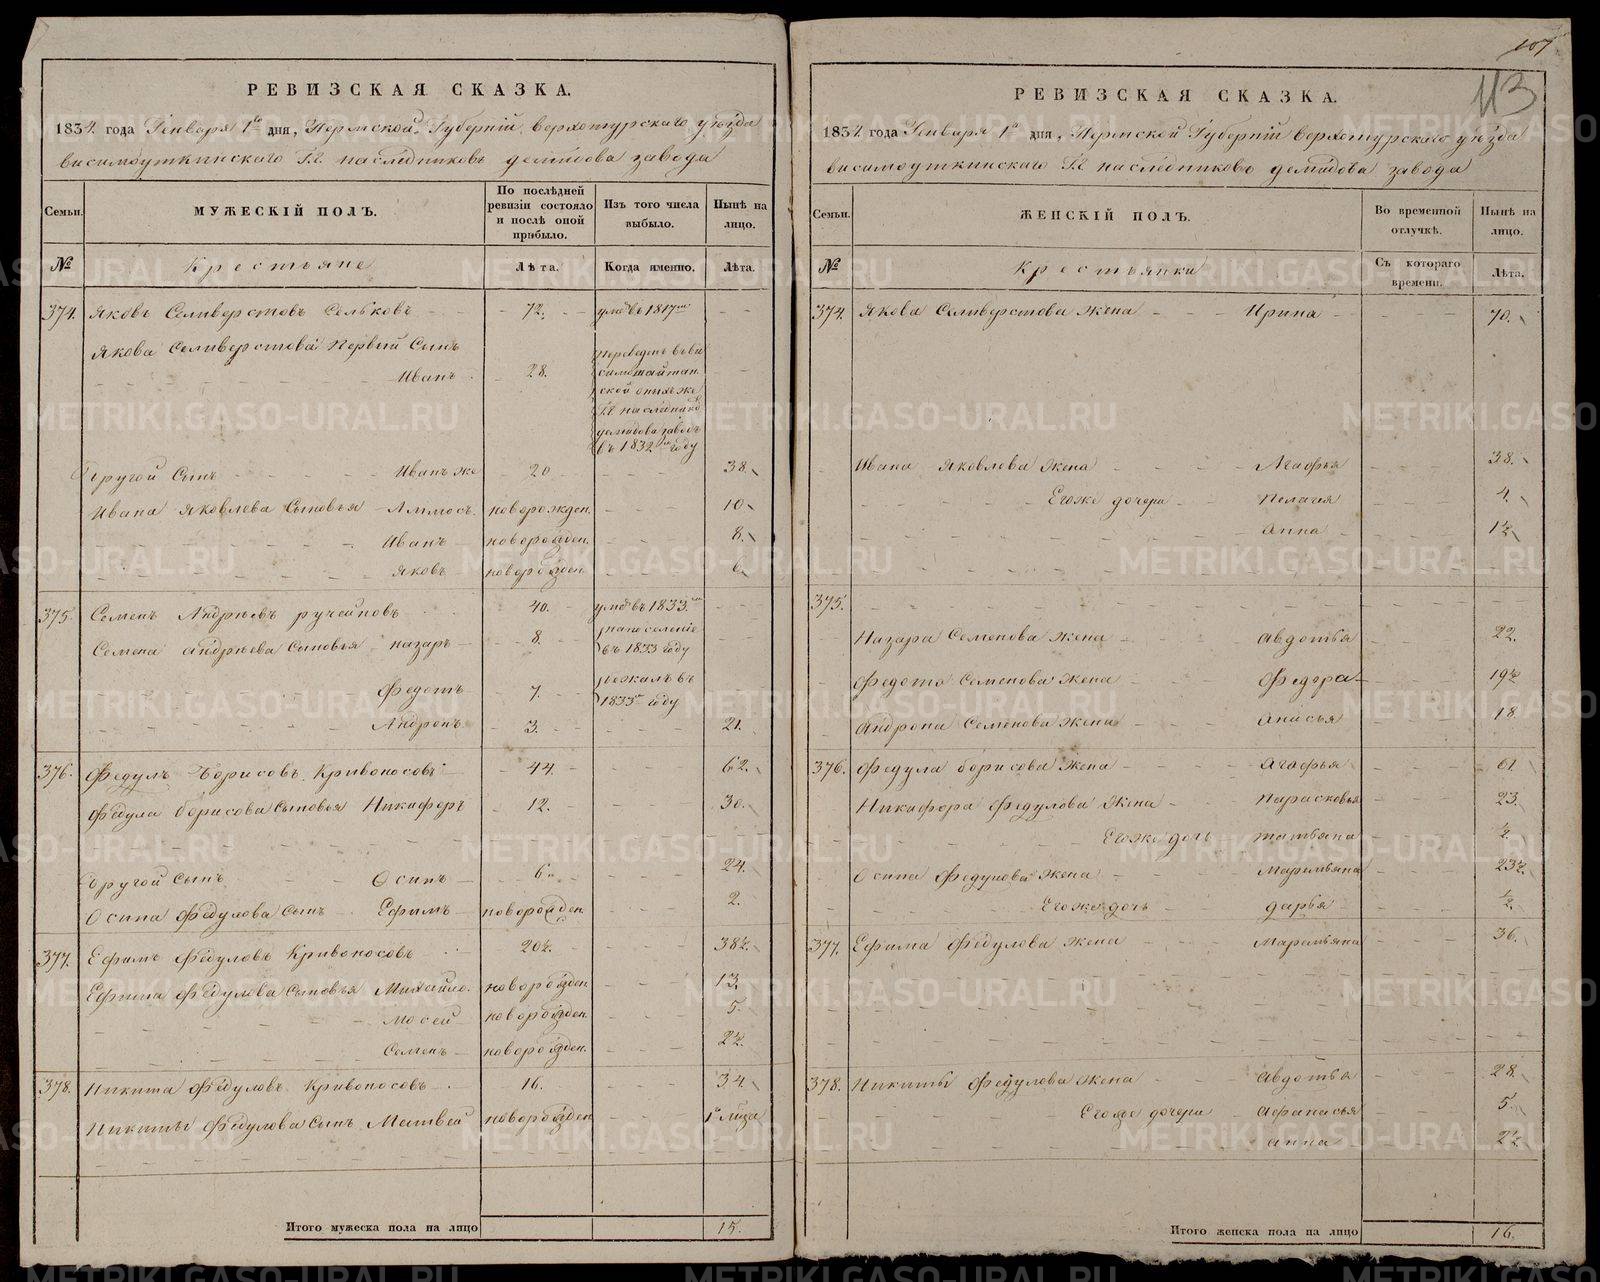 107
113
РЕВИЗСКАЯ СКАЗКА.
1834. года Генваря 1го дня, Пермской Губернiи верхотурскаго уѣзда
висимоуткинскаго Г.г. наслѣдниковъ демидова завода
Семьи. МУЖЕСКIЙ ПОЛЪ. По послѣдней ревизiи состояло и послѣ оной прибыло. Изъ того числа выбыло. Нынѣ на лицо.
№ Крестьяне Лѣта. Когда именно. Лѣта.
374. Яковъ Селиверстовъ Сельковъ 72. умре въ 1817мъ
Якова Селиверстова Первый Сынъ
Иванъ 28. переведенъ въ ви
симошайтан
ской оныхъ же
Г.г. наслѣдников
демидова заводъ
въ 1832мъ году
Другой Сынъ Иванъ же 20 38.
Ивана Яковлева Сыновья Аммосъ новорожден. 10
Иванъ новорожден. 8.
Яковъ новорожден 6
375. Семенъ Андрѣевъ ручейновъ 40. умре въ 1833.
Семена андрѣева Сыновья назаръ 8. на поселенiе
въ 1833 году
Федотъ 7. бежалъ въ
1833 году
Андронъ 3. 21.
376. Федулъ Борисовъ Кривоносовъ 44. 62.
Федула борисова Сыновья Никифоръ 12. 30.
другой Сынъ Осипъ 6 24.
Осипа Федулова Сынъ Ефимъ новорожден. 2.
377. Ефимъ Федуловъ Кривоносовъ 20½. 38½.
Ефима Федулова Сыновья Михайло. новорожден 13.
Мосей новорожден. 5.
Семенъ новорожден. 2½.
378. Никита Федуловъ Кривоносовъ 16. 34
Никиты Федулова Сынъ Матвей новорожден
Итого мужеска пола на лицо 15.
РЕВИЗСКАЯ СКАЗКА.
1834. года Генваря 1го дня, Пермской Губернiи верхотурскаго уѣзда
висимоуткинскаго Г.г. наслѣдниковъ демидова завода
Семьи. ЖЕНСКIЙ ПОЛЪ. Во временной отлучкѣ. Нынѣ на лицо.
№ Крестьянки Съ котораго времени. Лѣта.
374. Якова Селиверстова Жена Ирина 70.
Ивана Яковлева Жена Агафья 38.
Егоже дочери Пелагия 4.
анна 1½
375.
Назара Семенова Жена авдотья 22.
Федота Семенова Жена Федора 19½
Андрона Семенова Жена анисья 18
376. Федула борисова Жена агафья 61
Никифора Федулова Жена Парасковья 23.
Егоже дочь татьяна ½.
Осипа Федулова Жена Маремьяна 23½.
Егоже дочь дарья ½.
377. Ефима Федулова Жена Маремьяна 36.
378. Никиты Федулова Жена авдотья 28.
Егоже дочери афанасья 5.
анна 2½
Итого женска пола на лицо 16.
METRIKI.GASO-URAL.RU